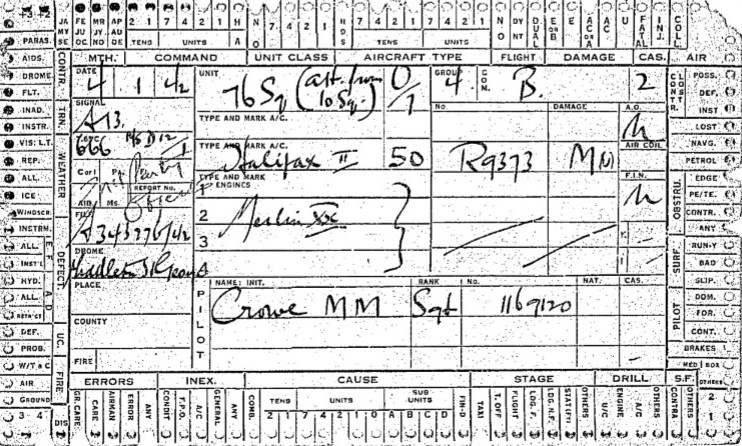 +3 +2 FE JU MR JY AP AU 2 1 7 4 2 1 H NO 7 4 2 1 HDS 7 4 2 1 7 4 2 1 NO DY NT DUAL E OR B E AC OR A AC U FATAL INJ. COLL.
PARAS. JA MY SE OC ND DE TENS UNITS A TENS UNITS
MTH. COMMAND UNIT CLASS AIRCRAFT TYPE FLIGHT DAMAGE CAS. AIR
AIDS. DROME FLT. INAD. INSTR. VIS: L.T. REP. ALL. ICE WINDSCR. INSTRN. ALL. INST'L HYD. ALL. RETR'CT DEF. PROB. W/T & C AIR GROUND 3 4
CONTR. TRN. WEATHER DEFECT. UC. FIRE DIS
E F A D
DATE 4 1 42
SIGNAL A13.
666
Carl
REPORT No.
AIR Ms.
FILE A343276/42
DROME Middleton St George
PLACE
COUNTY
FIRE
UNIT 76 Sq (att. from 10 Sq.) 0/1
GROUP 4. COM. B. 2
TYPE AND MARK A/C. No. DAMAGE A.O.
TYPE AND MARK A/C. Halifax II 50 R9373 MM AIR COLL
TYPE AND MARK ENGINES F.I.N.
1
2 Merlin XX
3
4
PILOT
NAME: INIT. RANK No. NAT. CAS.
Crowe MM Sgt 1169120
CONTR. CLOSTR. POSS. DEF. INST
LOST NAVG. PETROL
OBSTRU. EDGE PE/TE. CONTR. ANY
SURF. RUN-Y BAD SLIP.
PILOT DOM. FOR. CONT.
BRAKES
MED BOX
ERRORS INEX. CAUSE STAGE DRILL S.F. OTHERS
GR. CARE CARE AIRMAN ERROR ANY CONDIT F.P.O. A/C GENERAL ANY COMB. TENS 2 1 UNITS 7 4 2 1 0 SUB UNITS A B C D FIN-D TAXI T. OFF FLIGHT LDG. F. LDG. N.F. STAT(FT) OTHERS U/C ENGINE A/C OTHERS CONTRA. OTHERS 2 1